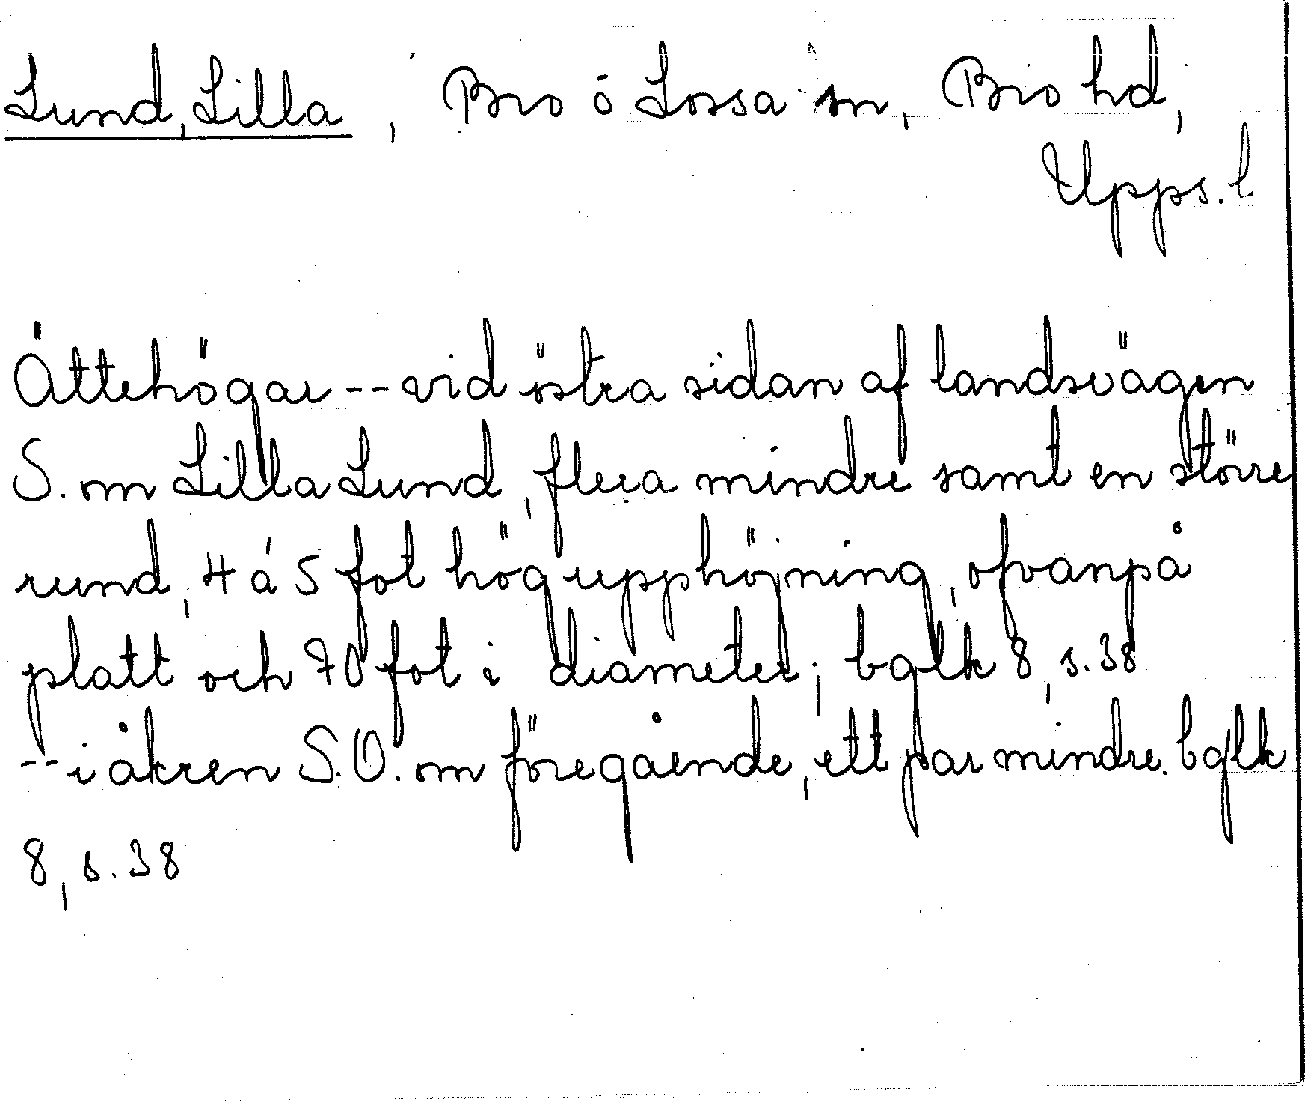 Lund, Lilla, Bro ó Lossa sn, Bro hd,
Upps. l
Ättehögar -- vid östra sidan af landsvägen
S. om Lilla Lund, flera mindre samt en större
rund, 4 á 5 fot hög upphöjning, ofvanpå
platt och 70 fot i diameter; bglk 8, s. 38
-- i åkren S.O. om föregående, ett par mindre. bglk
8, s. 38